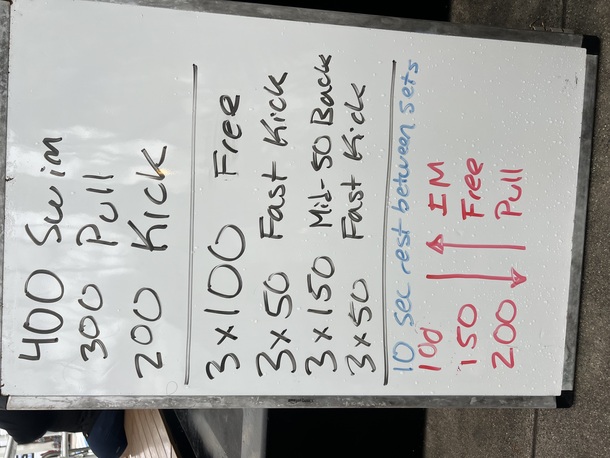 400 Swim
300 Pull
200 Kick
3x100 Free
3x50 Fast Kick
3x150 Mid-50 Back
3x50 Fast Kick
10 sec rest between sets
100 ↑ IM
150 Free
200 ↓ Pull